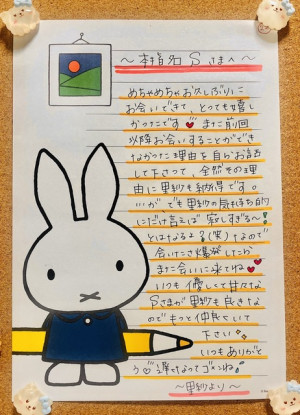 〜本指名Sさまへ〜
めちゃめちゃお久しぶりに
お会いできて、とっても嬉し
かったです♥ また前回
以降お会いすることができ
なかった理由を自らお話
して下さって、全然その理
由に里紗も納得です。
でも里紗の気持ち的
にだけ言えば 寂しすぎる〜!
とはなるよ?(笑)なので
会いたさ爆発したら
また会いに来てね♥
いつも優しくて甘々な
Sさまが里紗も良きな
のでもっと仲良くして
下さい
いつもありがと
う♡遅くなってゴメンね!
〜里紗より〜